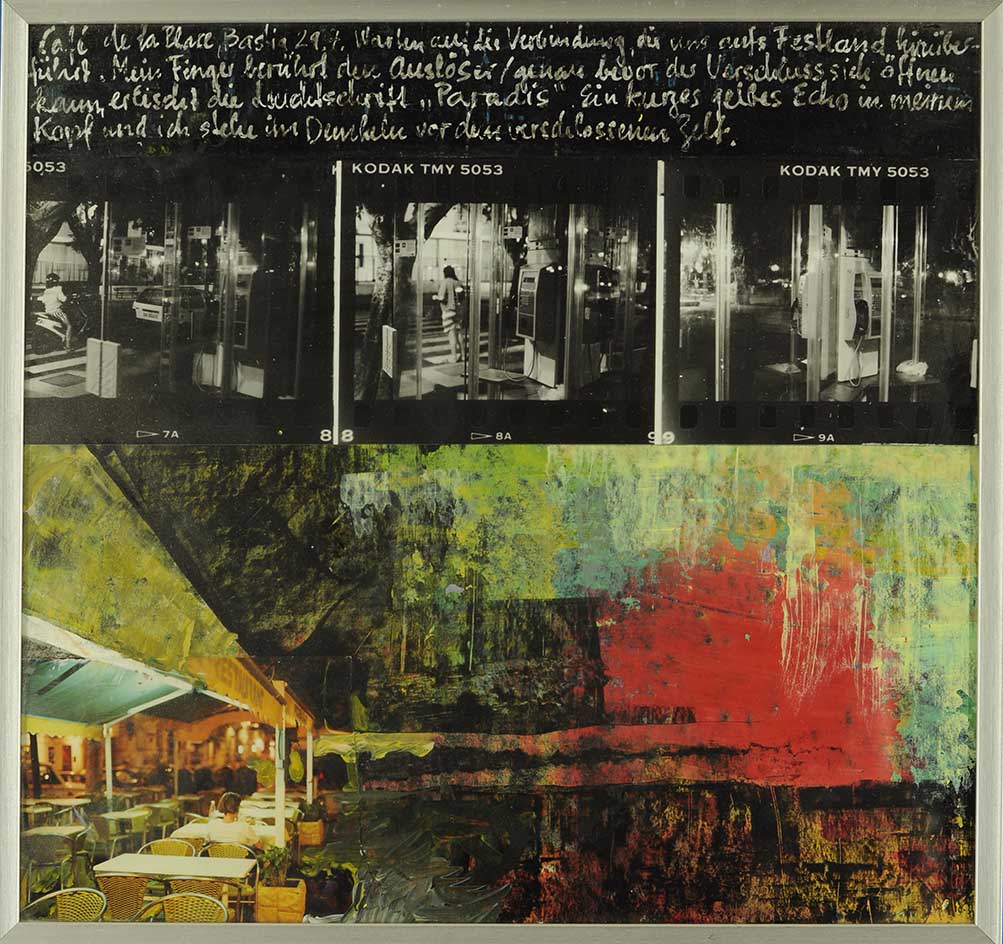 Café de la Place, Bastia 29.7. Warten auf die Verbindung, die uns aufs Festland hinüber-
führt. Mein Finger berührt den Auslöser / genau bevor der Verschluss sich öffnen
kann, erlischt die Leuchtschrift „Paradis“. Ein kurzes gelbes Echo in meinem
Kopf und ich stehe im Dunkeln vor dem verschlossenen Zelt.
5053 KODAK TMY 5053 KODAK TMY 5053
7A 8 8 8A 9 9 9A 1